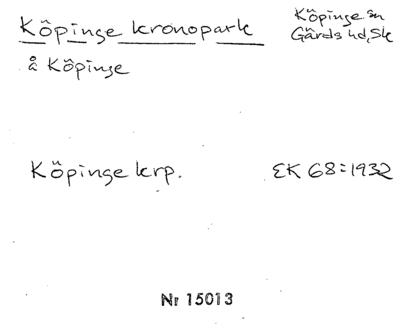 Köpinge kronopark
Köpinge sn
Gärds hd, Sk
å Köpinge
Köpinge krp.
EK 68:1932
Nr 15013